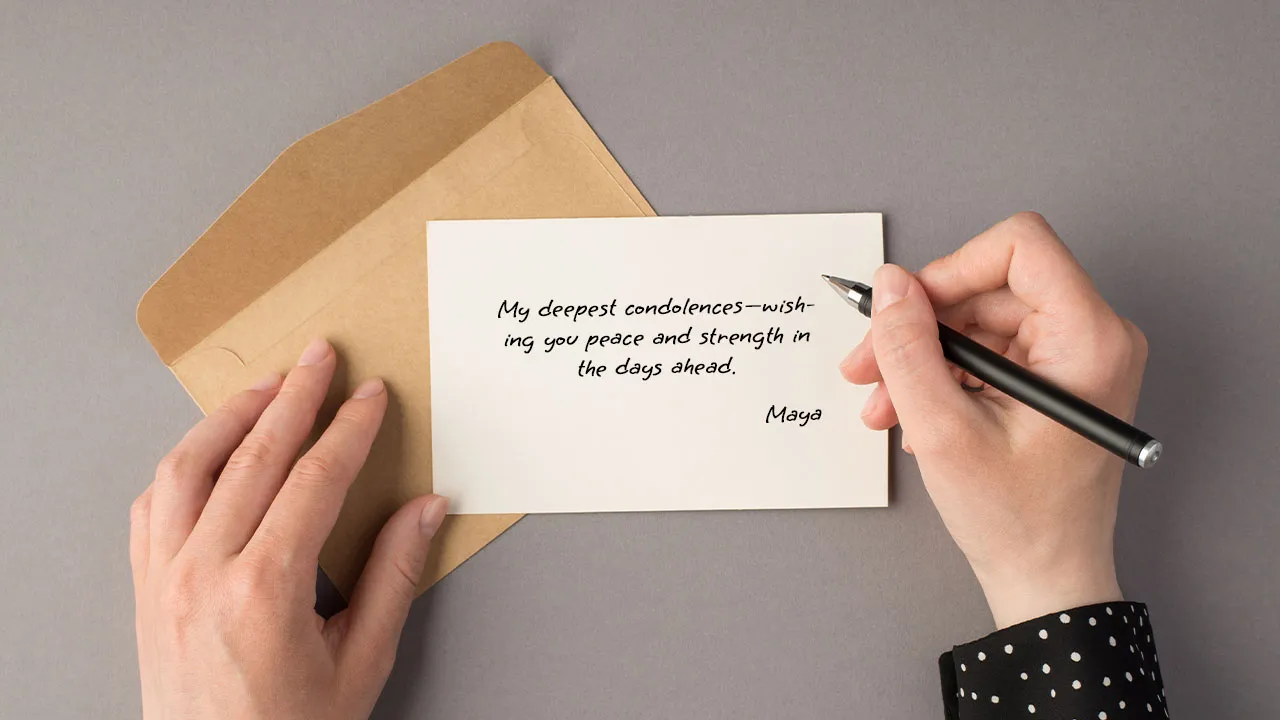 My deepest condolences—wish-
ing you peace and strength in
the days ahead.
Maya